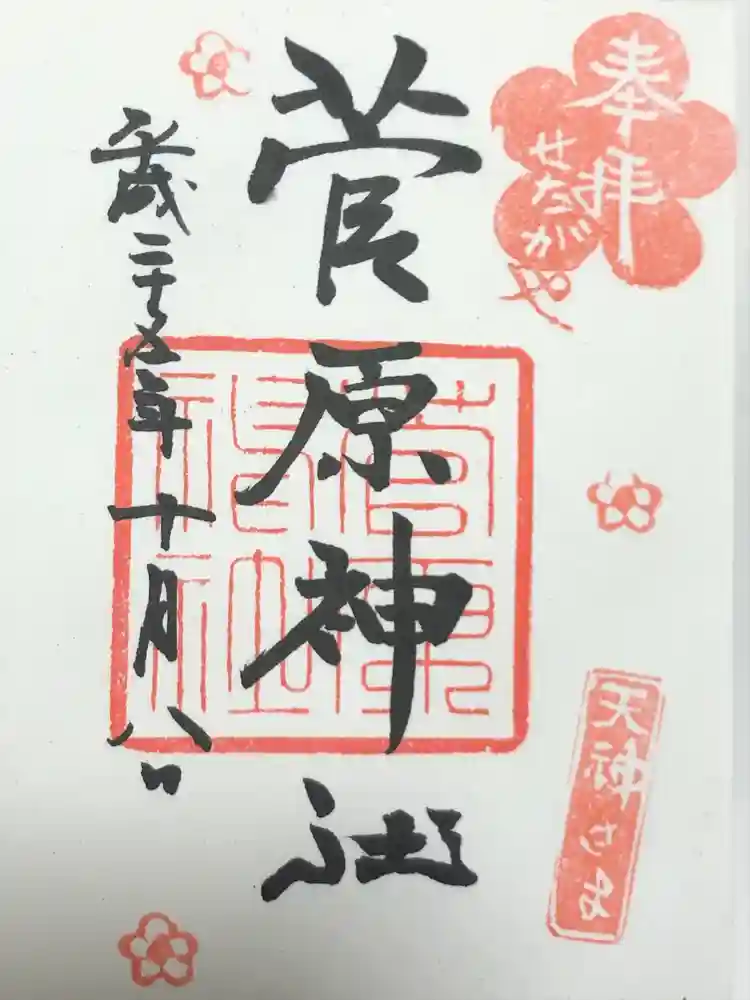 奉拝
せたがや
天神さま
菅原神社
菅原神社
平成二十五年十月八日